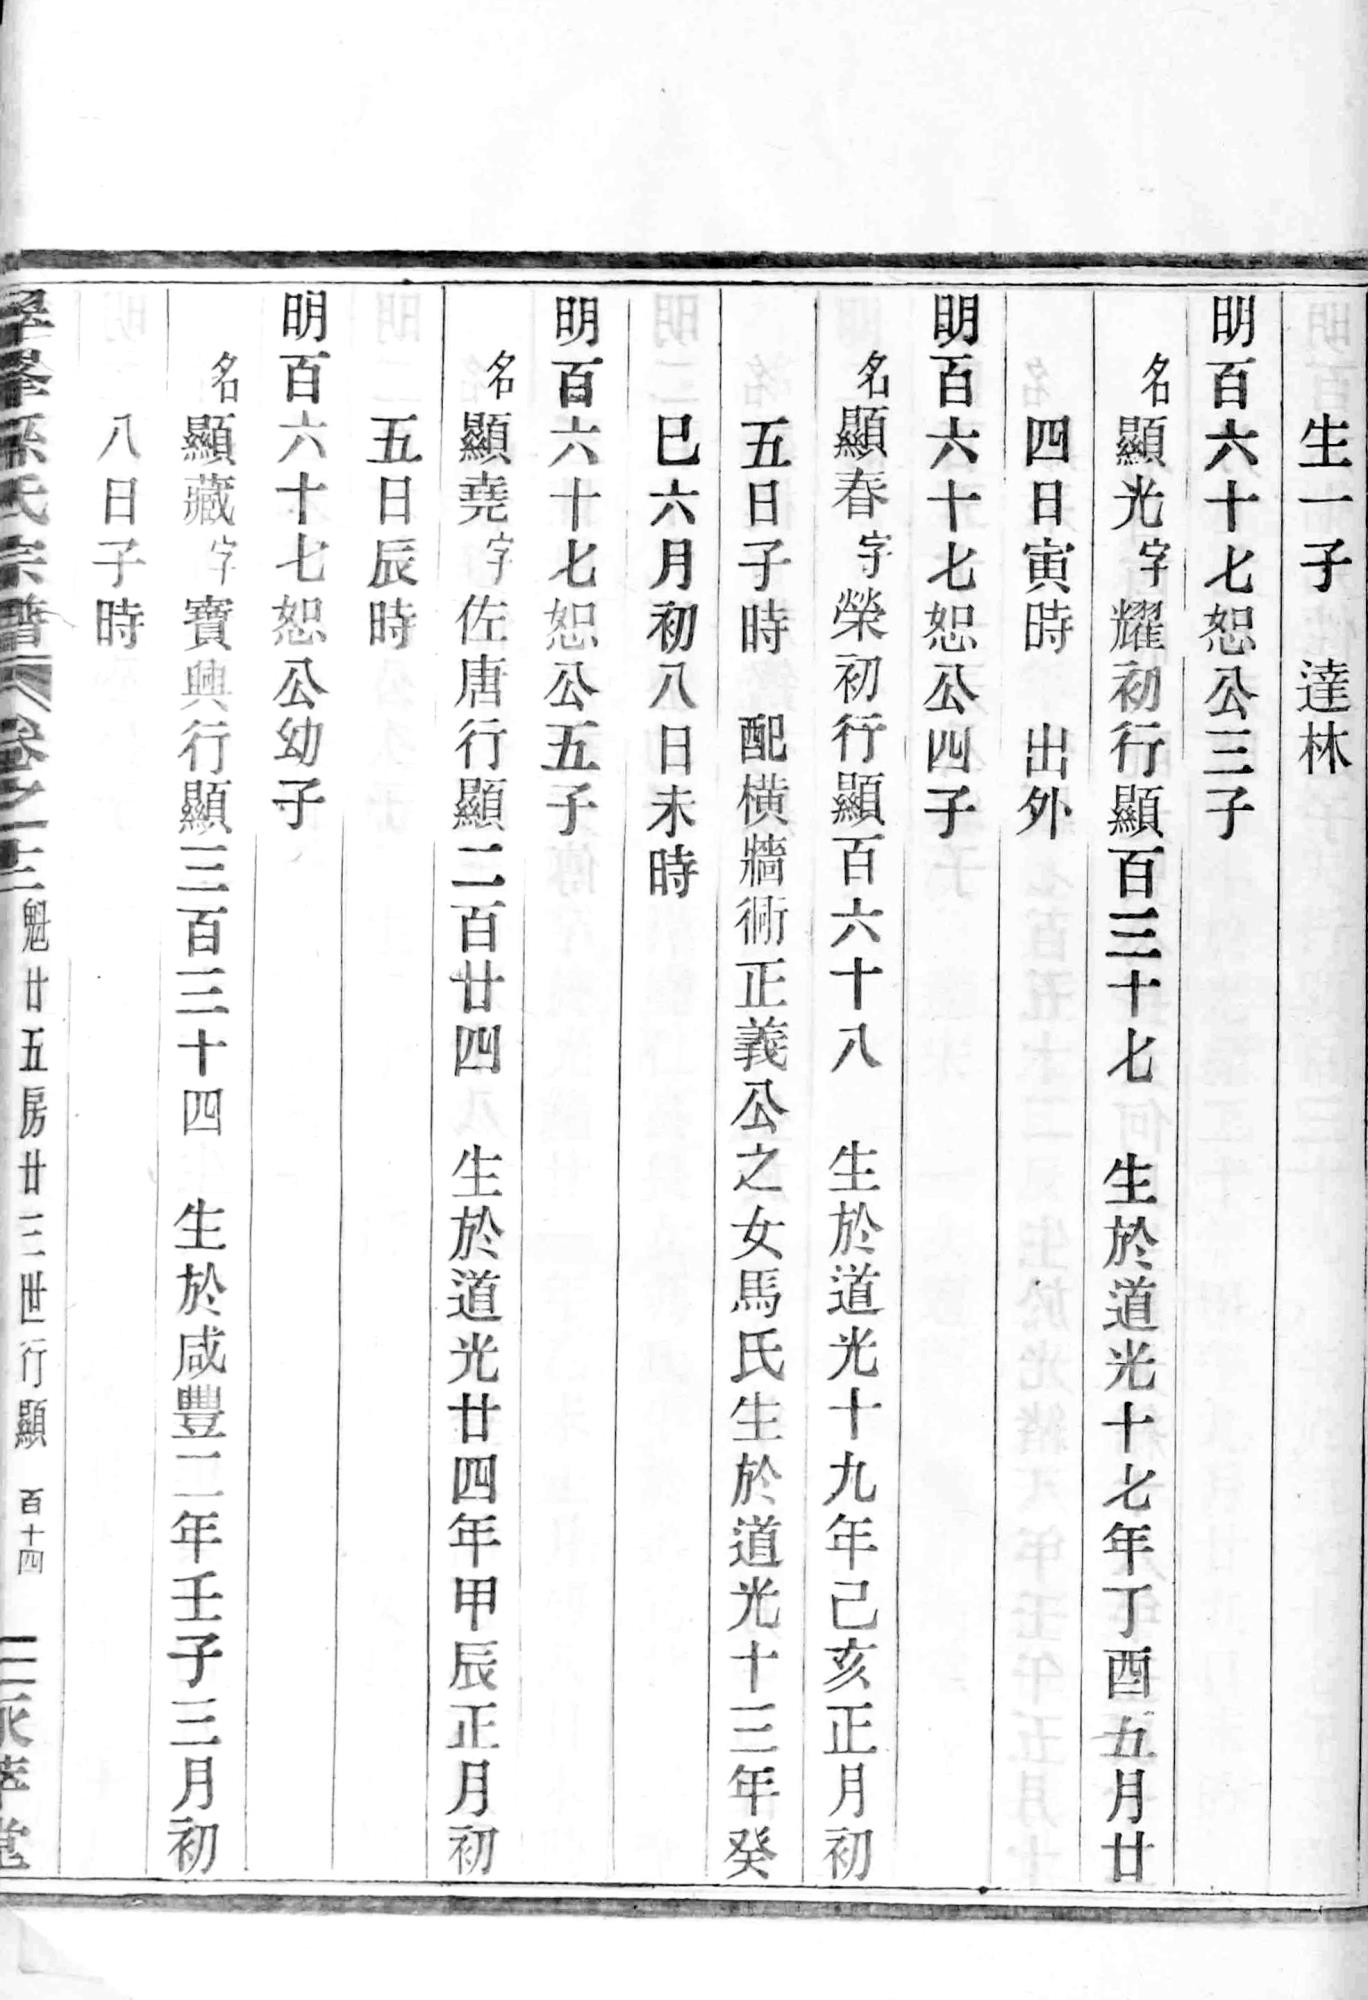 生一子　達林
明百六十七恕公三子
名顯光字耀初行顯百三十七　生於道光十七年丁酉五月廿
四日寅時　出外
明百六十七恕公四子
名顯春字榮初行顯百六十八　生於道光十九年己亥正月初
五日子時　配橫牆衕正義公之女馬氏生於道光十三年癸
巳六月初八日未時
明百六十七恕公五子
名顯堯字佐唐行顯二百廿四　生於道光廿四年甲辰正月初
五日辰時
明百六十七恕公幼子
名顯藏字寶興行顯三百三十四　生於咸豐二年壬子三月初
八日子時
孫氏宗譜　卷之十二　魁廿五房廿三世行顯　百十四　萃堂